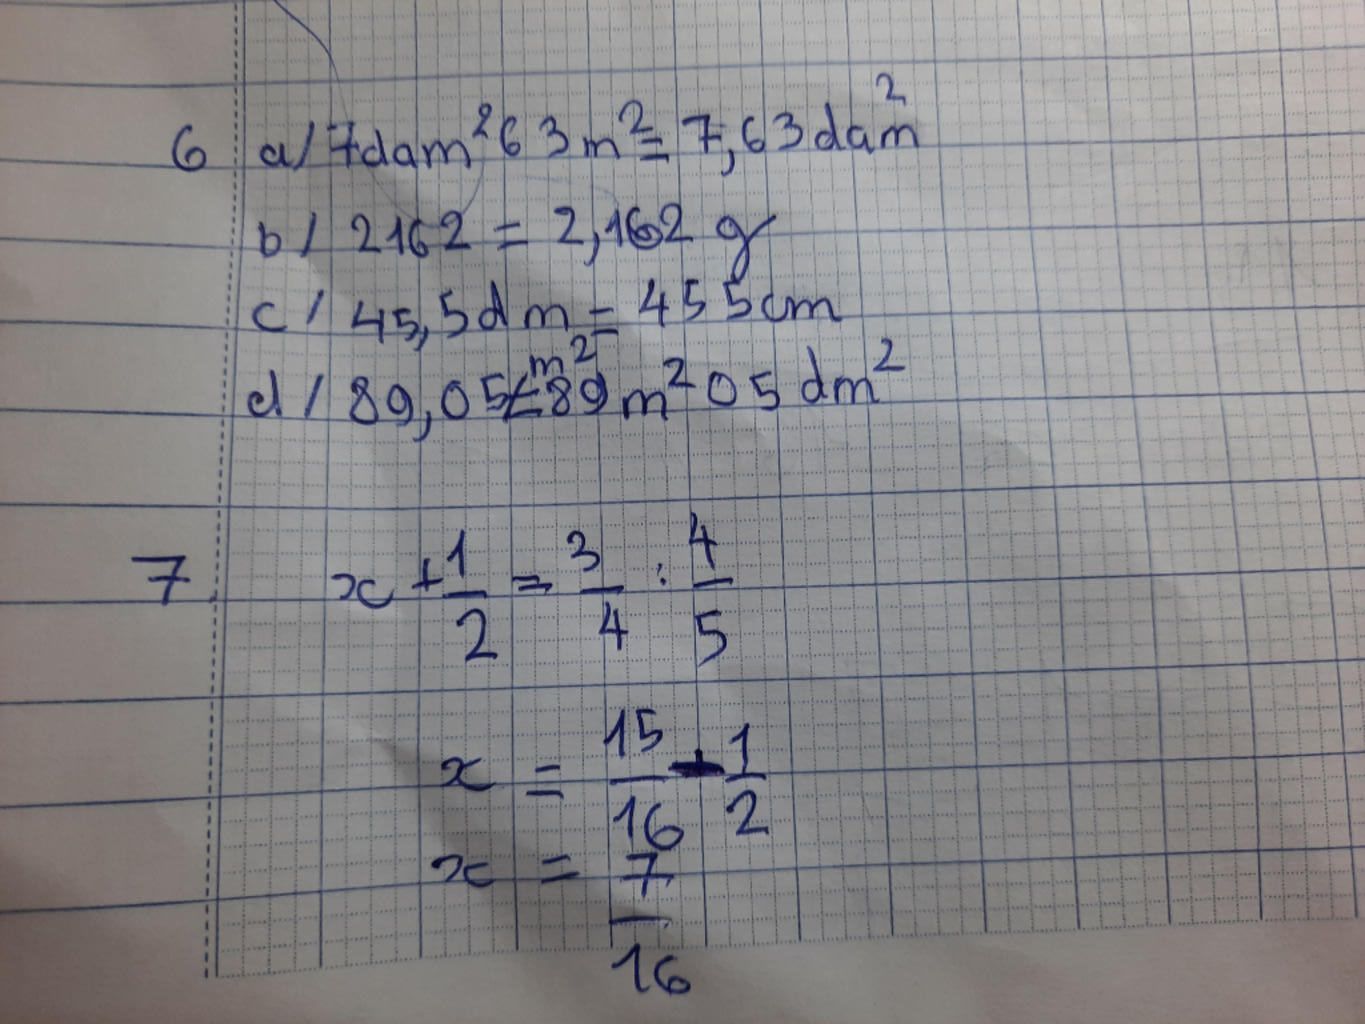 6 a/ 7dam² 63m² = 7,63dam²
b/ 2162 = 2,162 g
c/ 45,5dm = 455cm
d/ 89,05m² = 89m² 05 dm²
7 x + 1/2 = 3/4 : 4/5
x = 15/16 - 1/2
x = 7/16